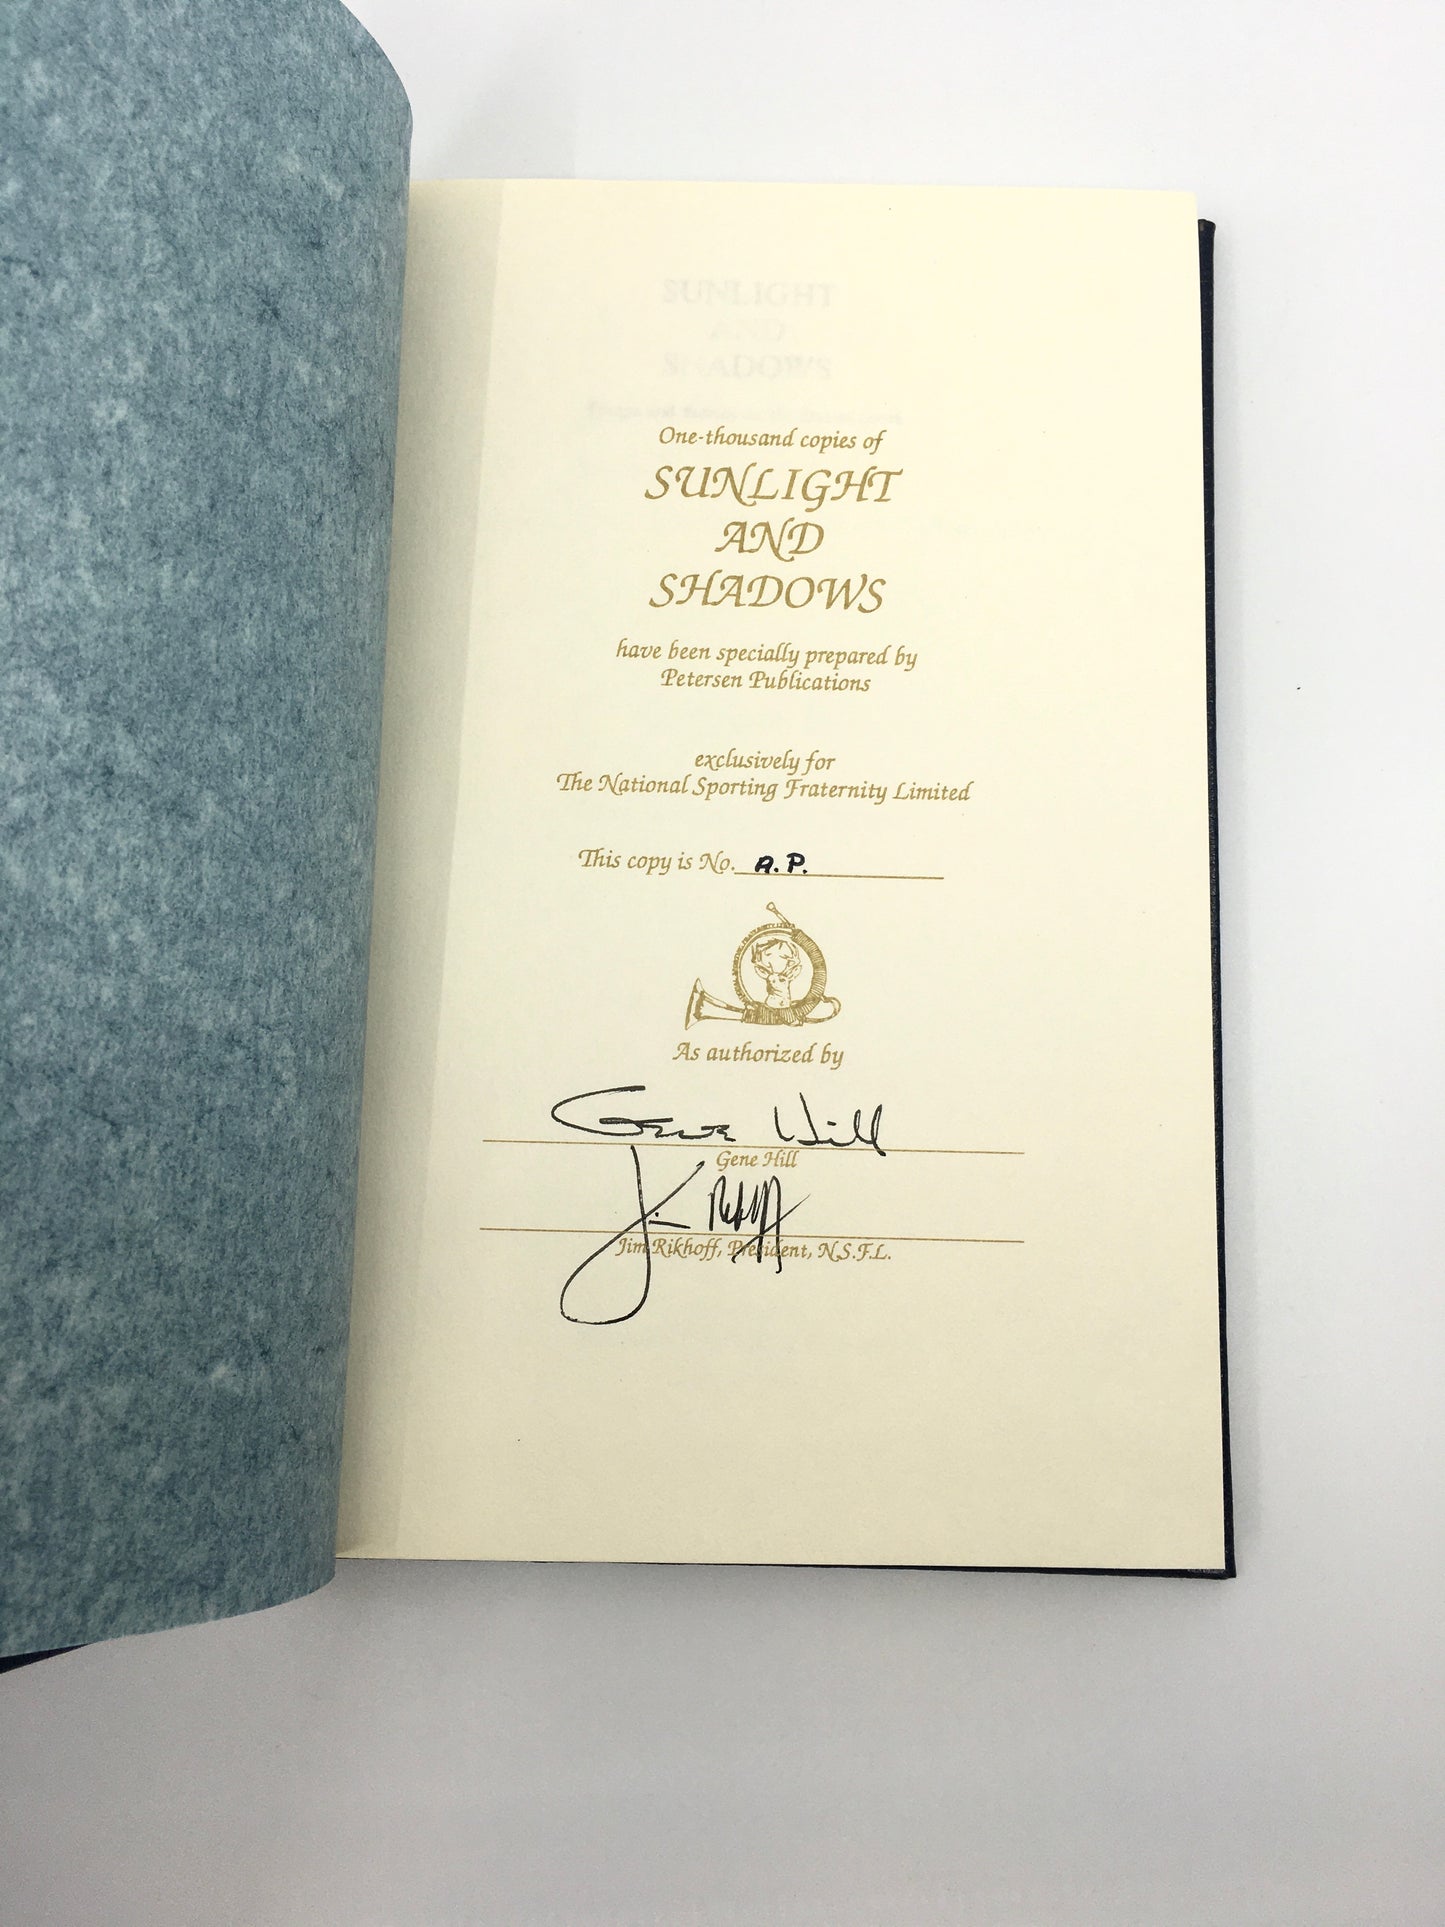 SUNLIGHT
AND
SHADOWS
One-thousand copies of
SUNLIGHT
AND
SHADOWS
have been specially prepared by
Petersen Publications
exclusively for
The National Sporting Fraternity Limited
This copy is No. A.P.
As authorized by
Gene Hill
Gene Hill
Jim Rikhoff
Jim Rikhoff, President, N.S.F.L.